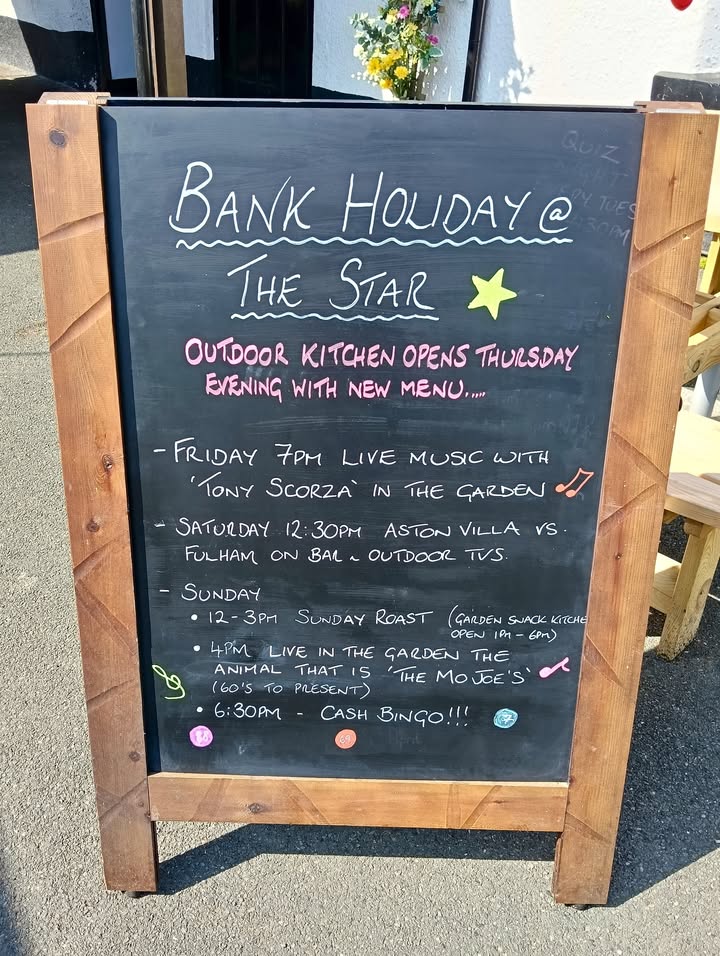 BANK HOLIDAY @
THE STAR
OUTDOOR KITCHEN OPENS THURSDAY
EVENING WITH NEW MENU....
- FRIDAY 7PM LIVE MUSIC WITH
'TONY SCORZA' IN THE GARDEN
- SATURDAY 12:30PM ASTON VILLA VS.
FULHAM ON BAR & OUTDOOR TVS.
- SUNDAY
• 12-3PM SUNDAY ROAST (GARDEN SNACK KITCHE
OPEN 1PM-6PM)
• 4PM LIVE IN THE GARDEN THE
ANIMAL THAT IS 'THE MOJOE'S'
(60'S TO PRESENT)
• 6:30PM - CASH BINGO!!!
QUIZ
TUES